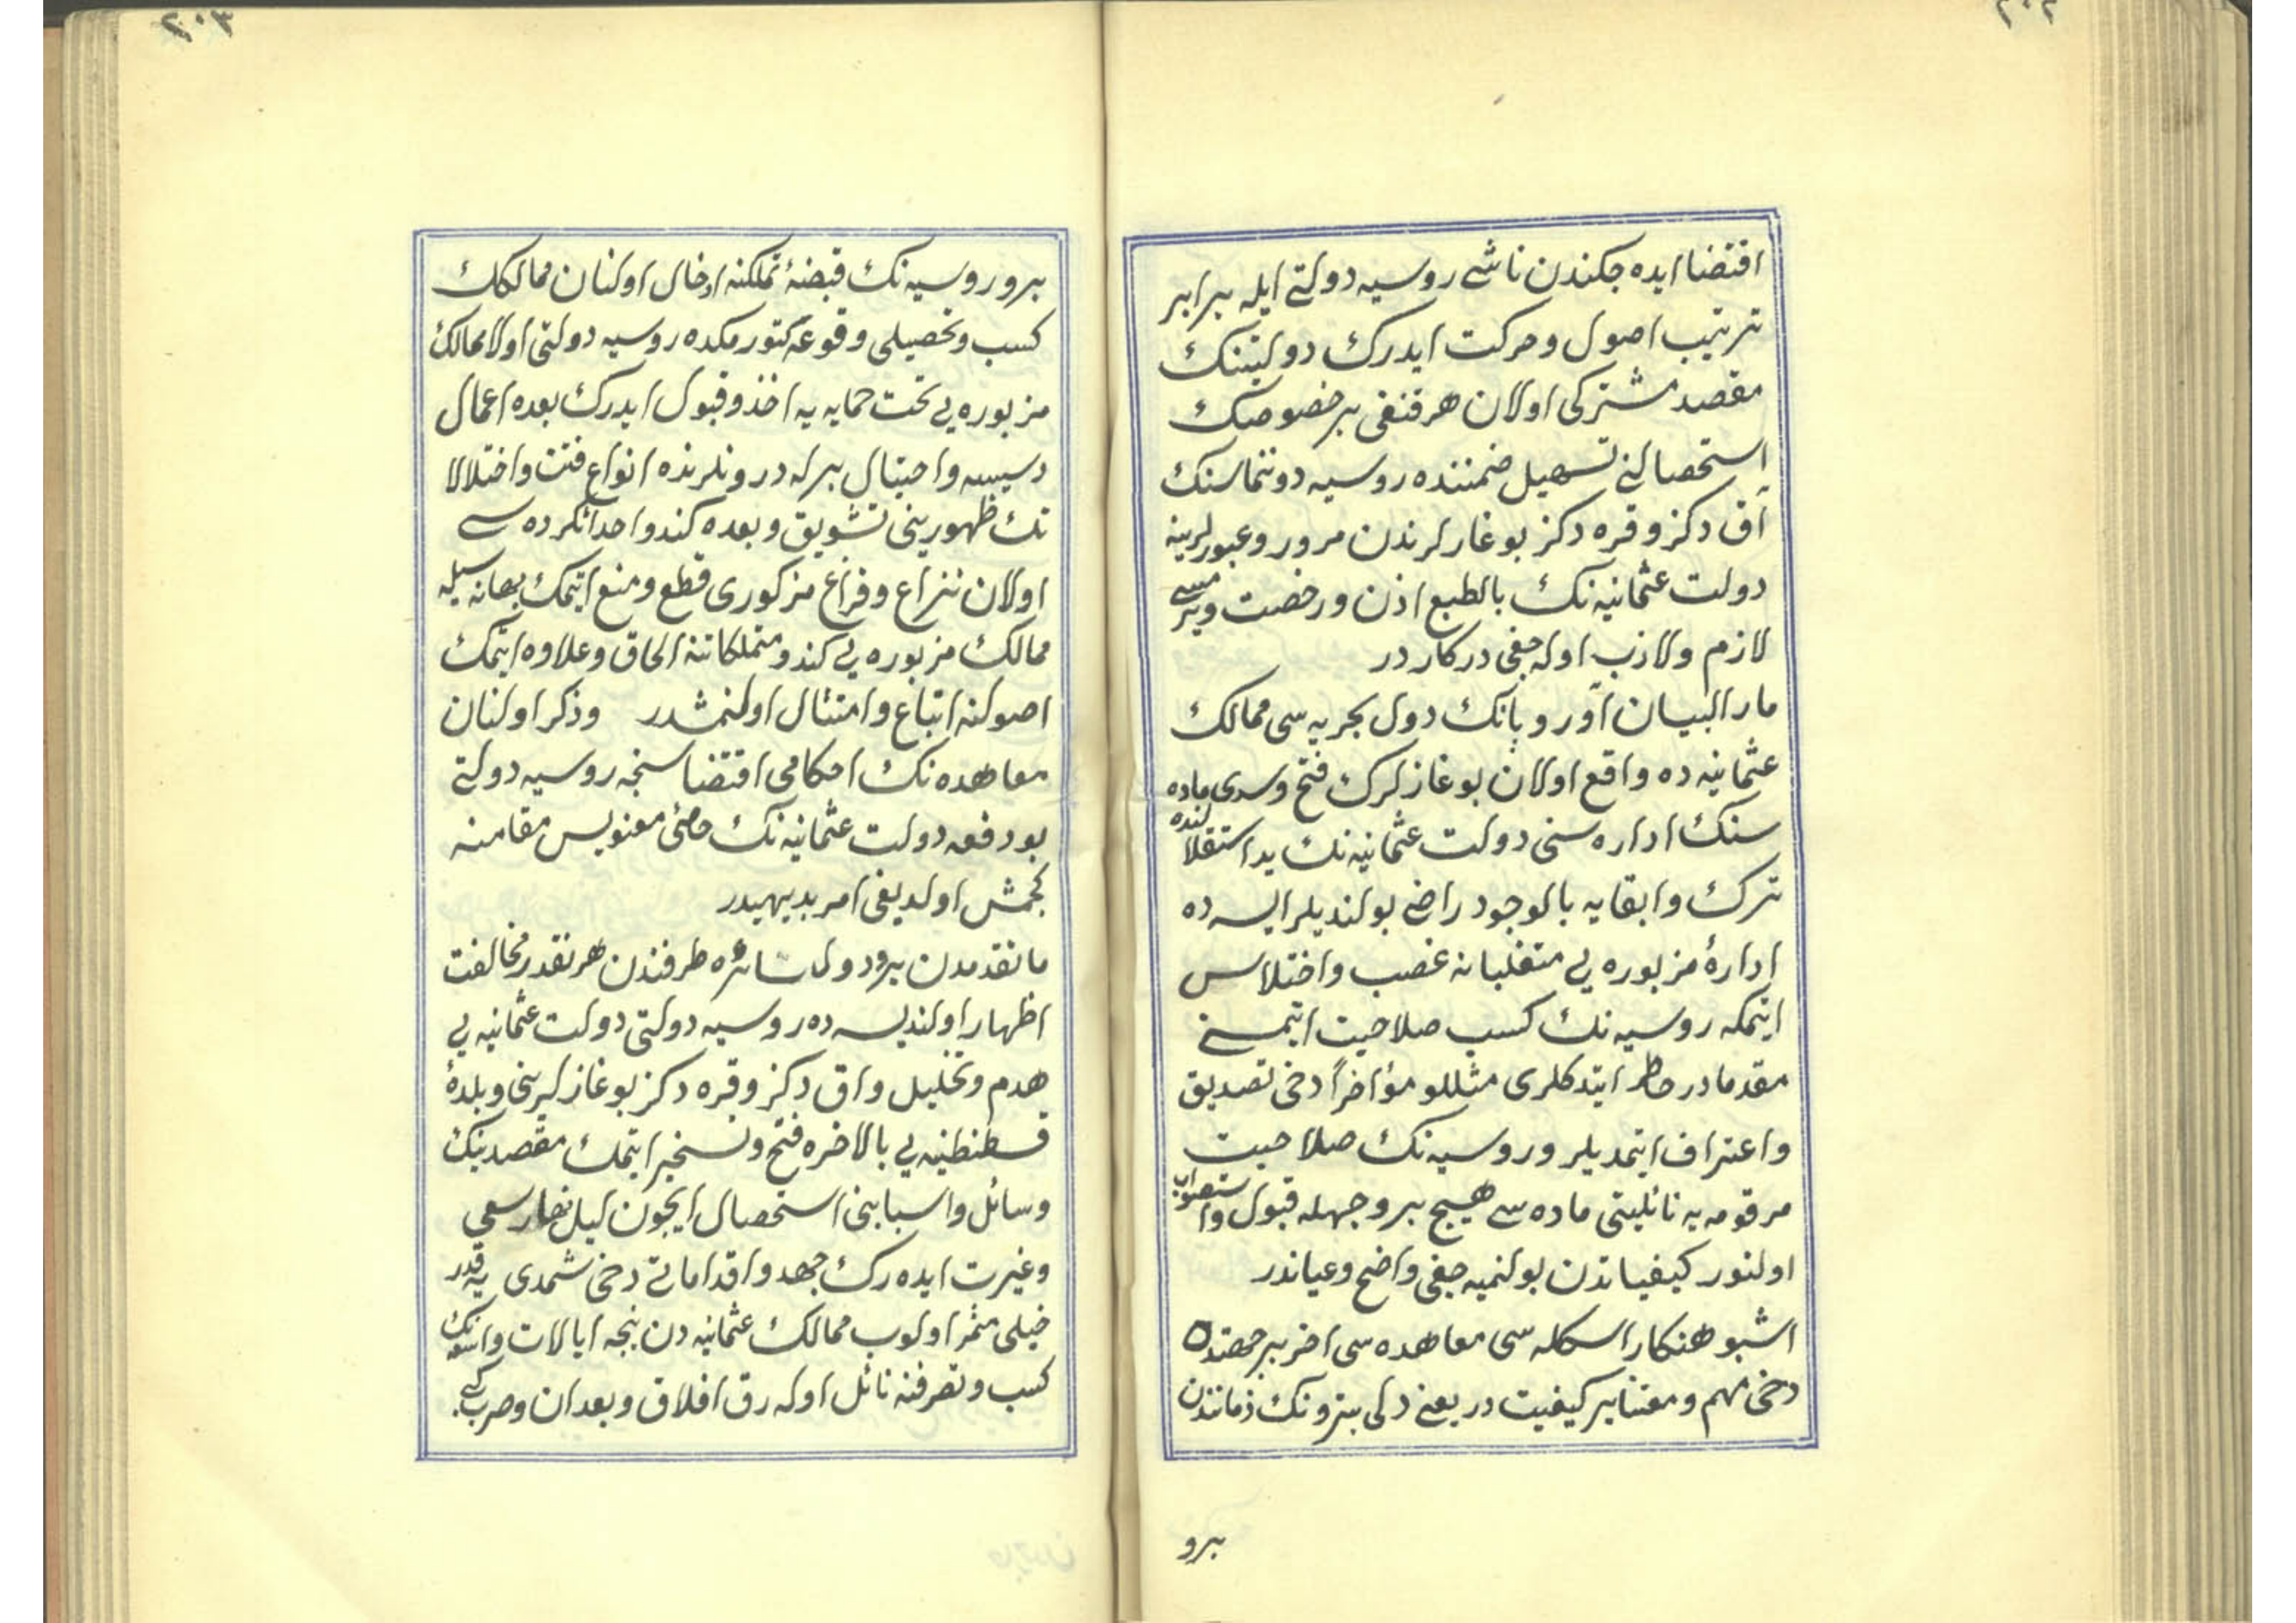 ٢٠٢
اقتضا ایده جکندن ناشی روسیه دولتی ایله برابر
ترتیب اصول و حرکت ایدرک دولتینک
مقصد مشترکی اولان هر قنغی بر خصوصک
استحصالنی تسهیل ضمننده روسیه دوننماسنک
آق دکز و قره دکز بوغازلرندن مرور و عبورلرینه
دولت عثمانیه نک بالطبع اذن و رخصت ویرمسی
لازم و لازب اوله جغی درکار در
مار البیان آوروپانک دول بحریه سی ممالک
عثمانیه ده واقع اولان بوغازلرک فتح و سدی ماده
سنک اداره سنی دولت عثمانیه نک ید استقلالنده
ترک و ابقایه بالوجود راضی بولندیلر ایسه ده
ادارۀ مزبوره یی متغلبانه غصب و اختلاس
ایتمکه روسیه نک کسب صلاحیت ایتمسنی
مقدما در خاطر ایتدکلری مثللو مؤاخراً دخی تصدیق
و اعتراف ایتمدیلر و روسیه نک صلاحیت
مرقومه یه نائلیتی ماده سی هیچ بر وجهله قبول و استصواب
اولنور کیفیاتدن بولنمیه جغی واضح و عیاندر
اشبو هنکار اسکله سی معاهده سی اخر بر جهتدن
دخی مهم و معتنا بر کیفیت در یعنی دلی پترونک زماننذن
برو
٢٠٣
برو روسیه نک قبضۀ تملکنه ادخال اولنان ممالکک
کسب و تحصیلی وقوعه کتورمکده روسیه دولتی اولا ممالک
مزبوره یی تحت حمایه یه اخذ و قبول ایدرک بعده اعمال
دسیسه و احتیال برله درونلرنده انواع فتن و اختلالا
تک ظهورینی تشویق و بعده کندو احداثکرده سی
اولان نزاع و فراغ مزکوری قطع و منع ایتمک بهانه سیله
ممالک مزبوره یی کندو متملکاتنه الحاق و علاوه ایتمک
اصولنه اتباع و امتثال اولنمشدر وذکر اولنان
معاهده نک احکامی اقتضاسنجه روسیه دولتی
بو دفعه دولت عثمانیه نک حامئ معنویسی مقامنه
کچمش اولدیغی امر بدیهیدر
ماتقدمدن برو دول سائره طرفندن هر نقدر مخالفت
اظهار اولندیسه ده روسیه دولتی دولت عثمانیه یی
هدم و تخلیل و اق دکز و قره دکز بوغازلرینی و بلدۀ
قسطنطنیه یی بالاخره فتح و تسخیر ایتمک مقصدینک
وسائل و اسبابنی استحصال ایچون لیل نهار سعی
و غیرت ایده رک جهد و اقداماتی دخی شمدی یه قدر
خیلی مثمر اولوب ممالک عثمانیه دن نیجه ایالات واسعه نک
کسب و تصرفنه نائل اوله رق افلاق و بغدان و صرب